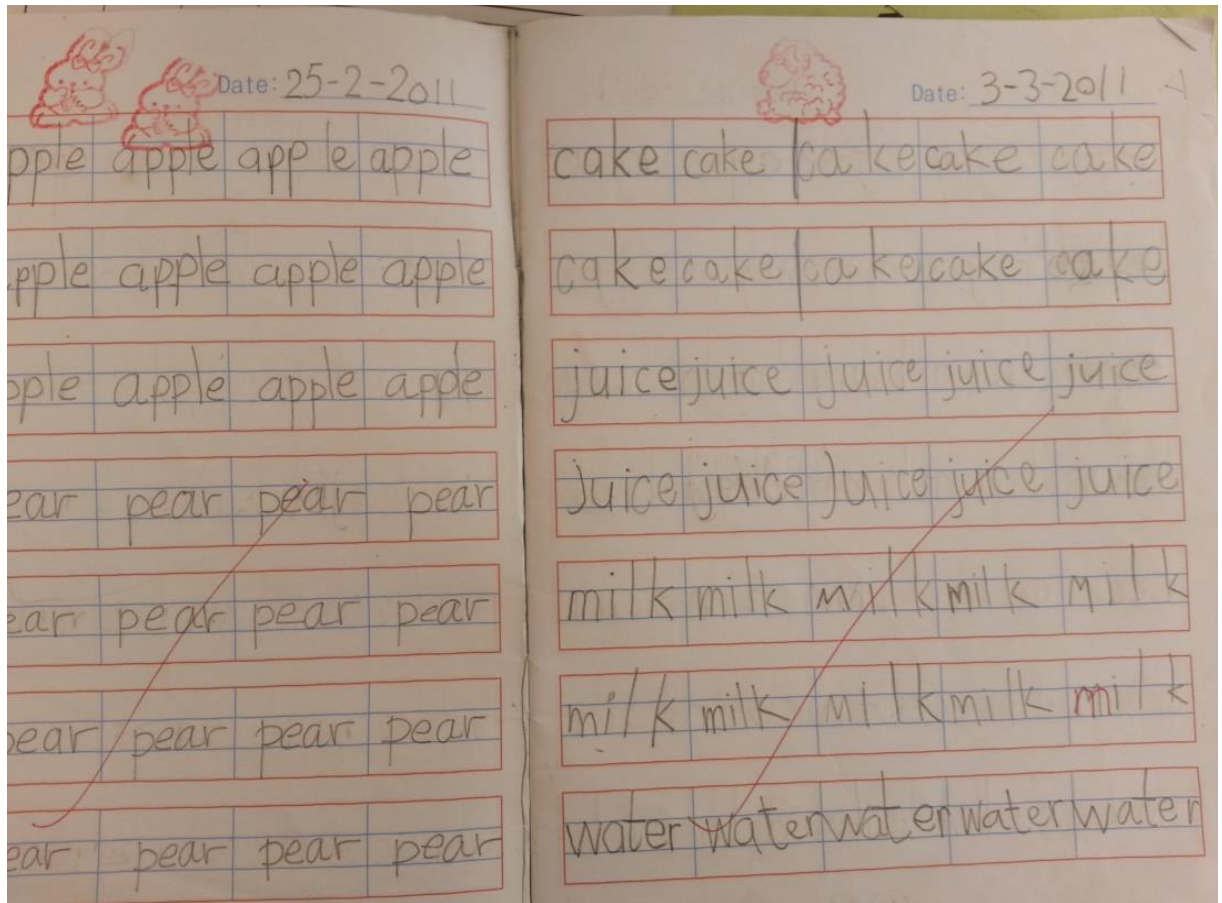 Date: 25-2-2011
pple apple apple apple
pple apple apple apple
pple apple apple apple
ear pear pear pear
ear pear pear pear
pear pear pear pear
ear pear pear pear
Date: 3-3-2011
cake cake cake cake cake
cake cake cake cake cake
juice juice juice juice juice
Juice juice Juice juice juice
milk milk milk milk milk
milk milk milk milk milk
water water water water water